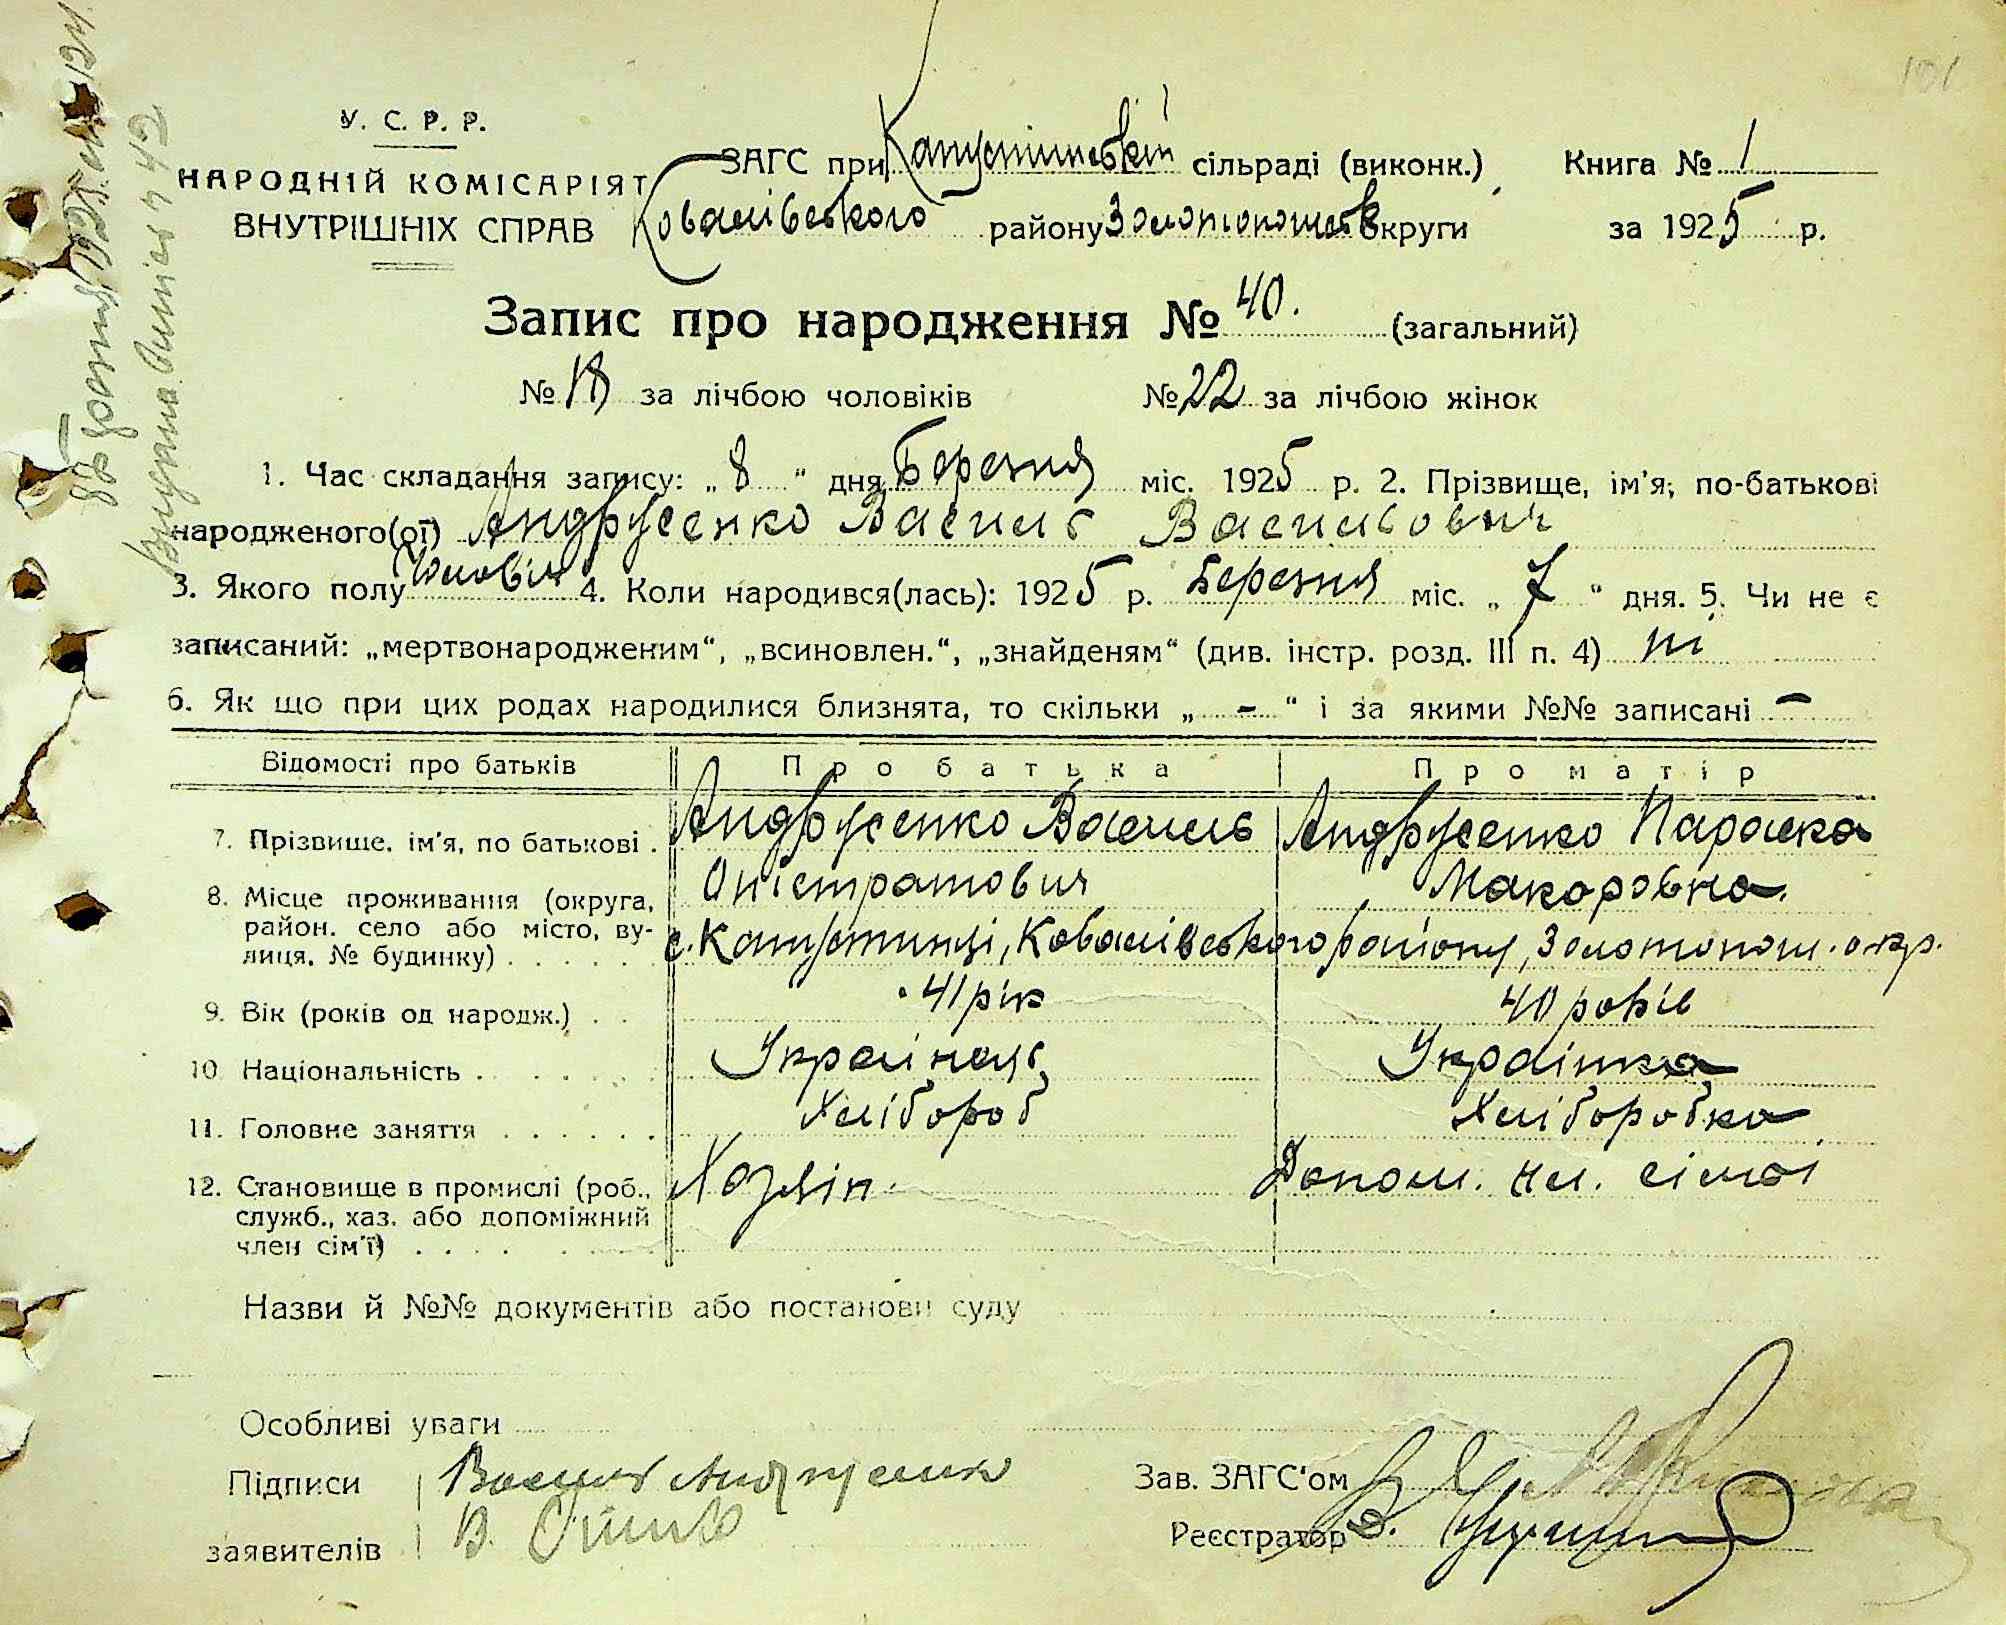 101
У. С. Р. Р.
НАРОДНІЙ КОМІСАРІЯТ
ВНУТРІШНІХ СПРАВ
ЗАГС при Капустинській сільраді (виконк.)
Ковалівського району Золотоношськ округи
Книга № 1
за 1925 р.
Запис про народження № 40. (загальний)
№ 18 за лічбою чоловіків № 22 за лічбою жінок
1. Час складання запису: „ 8 “ дня Березня міс. 1925 р. 2. Прізвище, ім'я, по-батькові
народженого(ої) Андрусенко Василь Васильович
3. Якого полу чоловіч 4. Коли народився(лась): 1925 р. Березня міс. „ 7 “ дня. 5. Чи не є
записаний: „мертвонародженим“, „всиновлен.“, „знайденям“ (див. інстр. розд. III п. 4) ні
6. Як що при цих родах народилися близнята, то скільки „ - “ і за якими №№ записані -
Відомості про батьків Про батька Про матір
7. Прізвище, ім'я, по батькові . Андрусенко Василь Андрусенко Параска
Оністратович Макоровна.
8. Місце проживання (округа,
район, село або місто, ву-
лиця, № будинку) . . . . . . с. Капустинці, Ковалівського району, Золотонош. окр.
9. Вік (років од народж.) . . 41 рік 40 років
10. Національність . . . . . . Українець Українка
11. Головне заняття . . . . . . Хлібороб Хліборобка
12. Становище в промислі (роб., Хозяін. Допом. чл. сімьі
служб., хаз. або допоміжний
член сім'ї) . . . . . . .
Назви й №№ документів або постанови суду
Особливі уваги
Підписи Василь Андрусенко
заявителів В.
Зав. ЗАГС'ом
Реєстратор